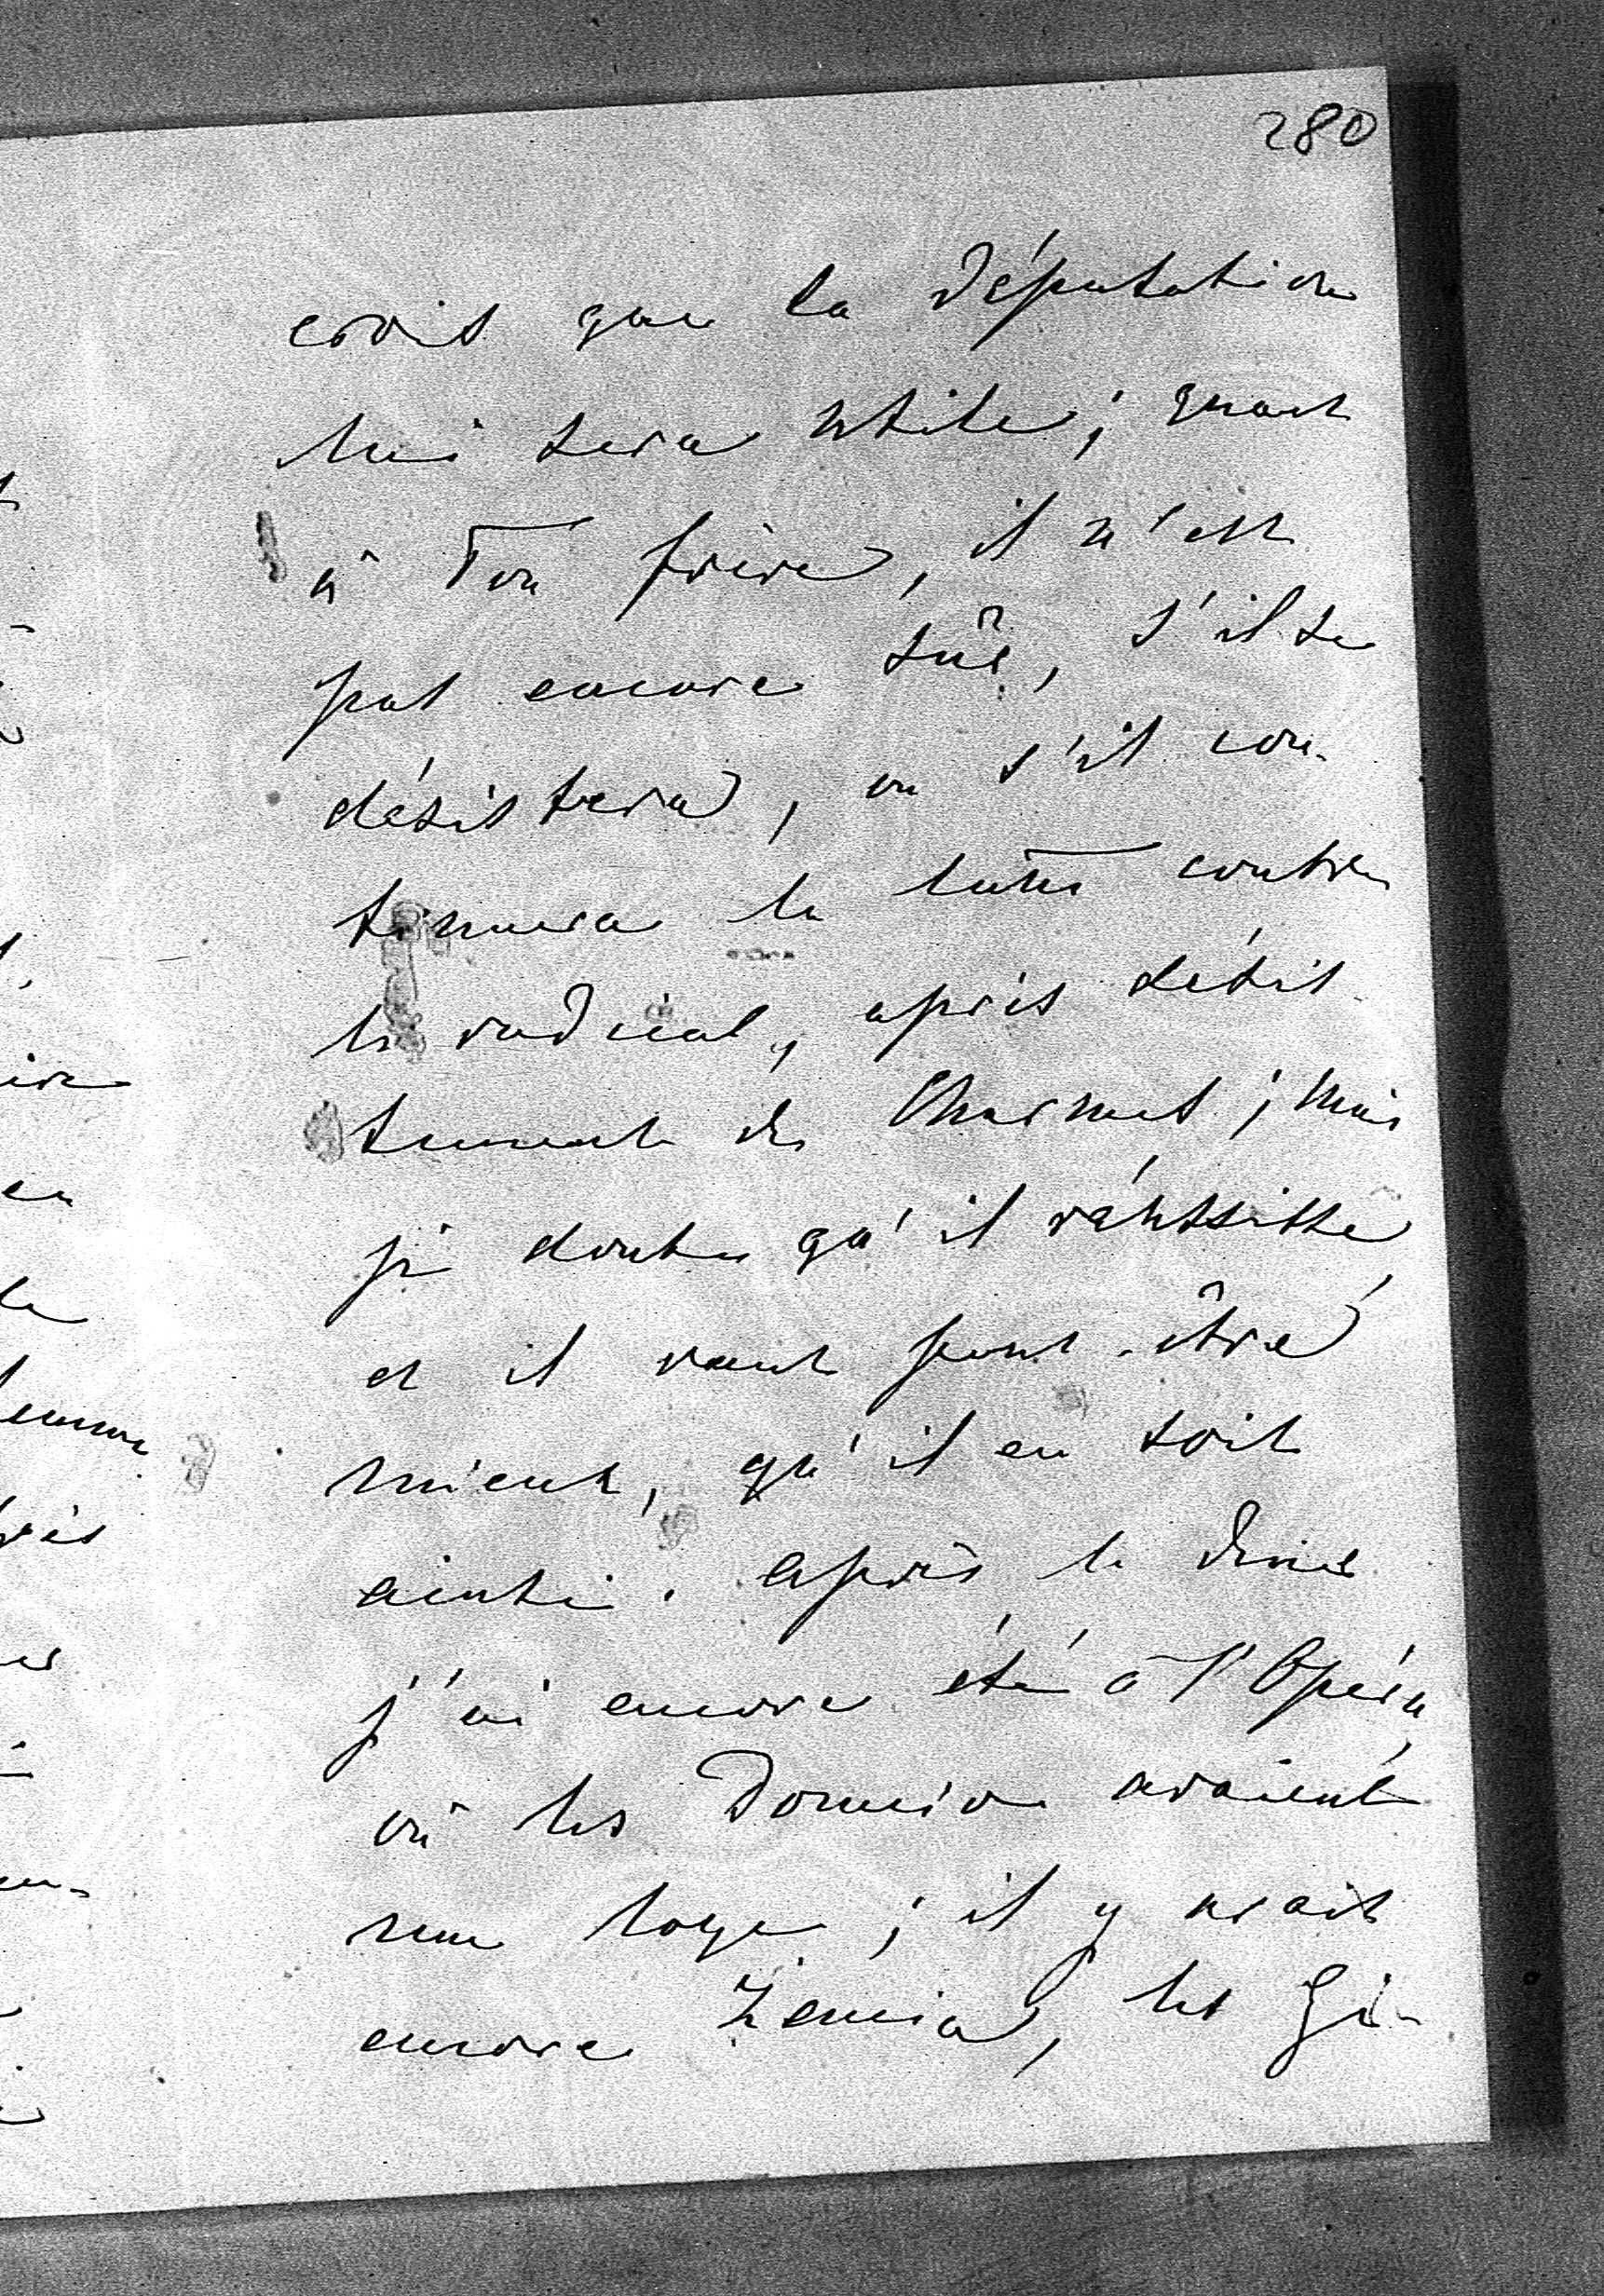 280
croit que la députation
lui sera utile ; quant
à Ton frère, il n'est
pas encore sûr, s'il se
désistera, ou s'il con-
tinuera la lutte contre
le radical, après désis-
tement de Charmes ; mais
je doute qu'il réussisse,
et il vaut peut-être
mieux, qu'il en soit
ainsi. après le diner
j'ai encore été à l'Opéra,
où les avaient
une loge ; il y avait
encore Zenia, les Gi-